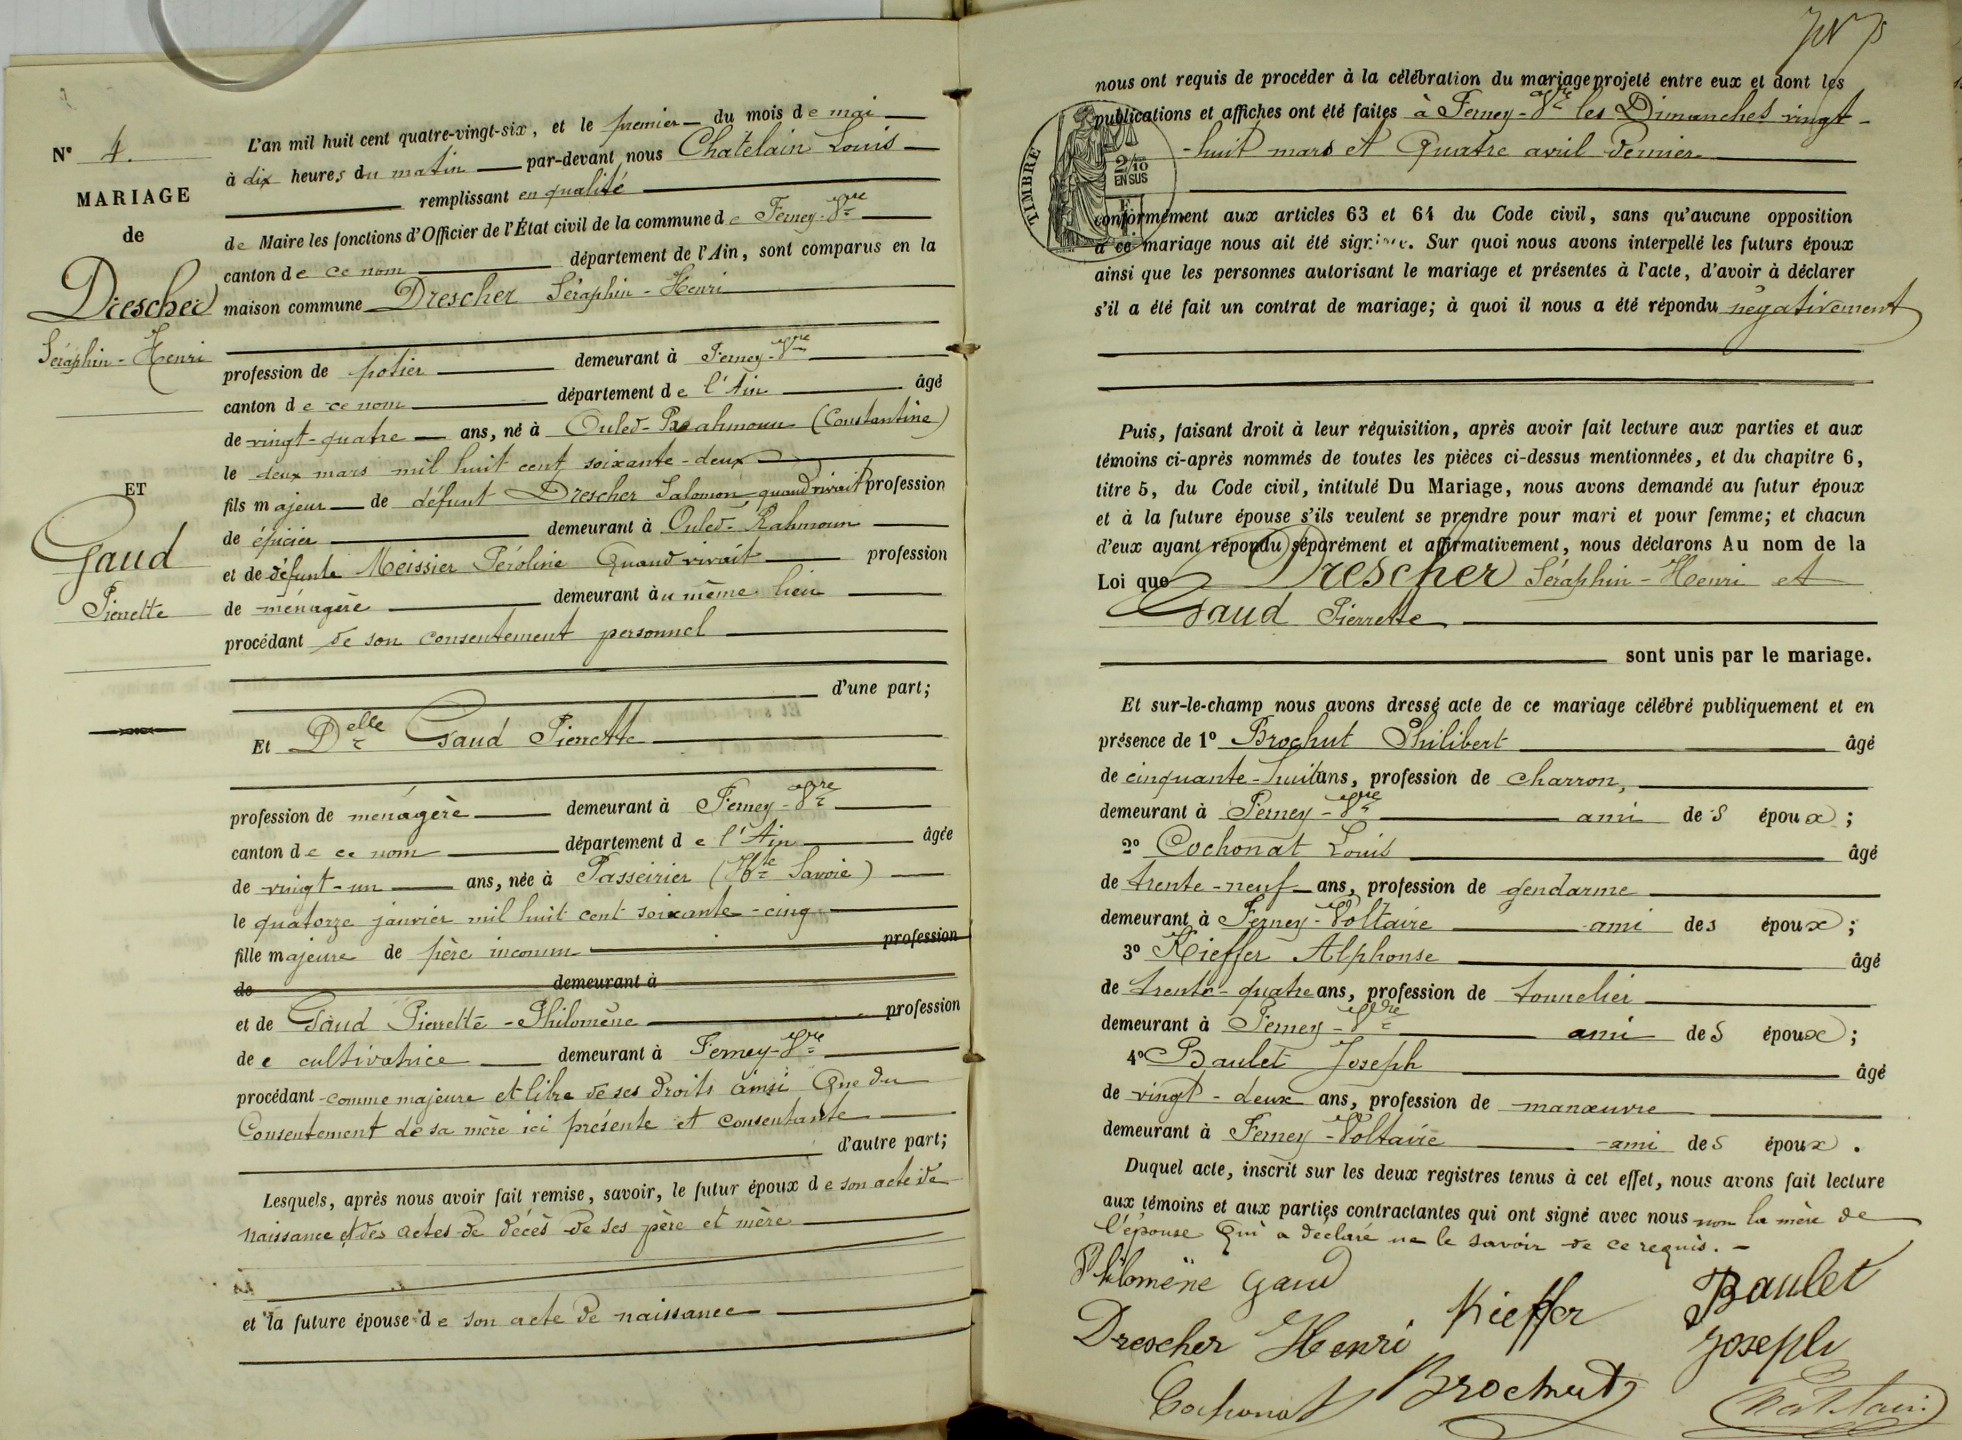 N° 4.
MARIAGE
de
Drescher
Séraphin-Henri
ET
Gaud
Pierrette
L'an mil huit cent quatre-vingt-six, et le premier du mois de mai
à dix heures du matin par-devant nous Chatelain Louis
remplissant en qualité
de Maire les fonctions d'Officier de l'État civil de la commune de Ferney-Vre
canton de ce nom département de l'Ain, sont comparus en la
maison commune Drescher Séraphin-Henri
profession de potier demeurant à Ferney-Vre
canton de ce nom département de l'Ain âgé
de vingt-quatre ans, né à Ouled-Rahmoun (Constantine)
le deux mars mil huit cent soixante-deux
fils majeur de défunt Drescher Salomon, quand vivait profession
de épicier demeurant à Ouled-Rahmoun
et de défunte Meissier Péroline Quand vivait profession
de ménagère demeurant au même lieu
procédant de son consentement personnel
d'une part;
Et Delle Gaud Pierrette
profession de ménagère demeurant à Ferney-Vre
canton de ce nom département de l'Ain âgée
de vingt-un ans, née à Passeirier (Hte Savoie)
le quatorze janvier mil huit cent soixante-cinq
fille majeure de père inconnu profession
de demeurant à
et de Gaud Pierrette-Philomène profession
de e cultivatrice demeurant à Ferney-Vre
procédant comme majeure et libre de ses droits ainsi Que du
Consentement de sa mère ici présente et consentante
d'autre part;
Lesquels, après nous avoir fait remise, savoir, le futur époux de son acte de
naissance et des actes de décès de ses père et mère
et la future épouse de son acte de naissance
nous ont requis de procéder à la célébration du mariage projeté entre eux et dont les
publications et affiches ont été faites à Ferney-Vre les Dimanches vingt-
-huit mars et Quatre avril dernier
TIMBRE
2/10
EN SUS
conformément aux articles 63 et 64 du Code civil, sans qu'aucune opposition
à ce mariage nous ait été signifiée. Sur quoi nous avons interpellé les futurs époux
ainsi que les personnes autorisant le mariage et présentes à l'acte, d'avoir à déclarer
s'il a été fait un contrat de mariage; à quoi il nous a été répondu négativement
Puis, faisant droit à leur réquisition, après avoir fait lecture aux parties et aux
témoins ci-après nommés de toutes les pièces ci-dessus mentionnées, et du chapitre 6,
titre 5, du Code civil, intitulé Du Mariage, nous avons demandé au futur époux
et à la future épouse s'ils veulent se prendre pour mari et pour femme; et chacun
d'eux ayant répondu séparément et affirmativement, nous déclarons Au nom de la
Loi que Drescher Séraphin-Henri et
Gaud Pierrette
sont unis par le mariage.
Et sur-le-champ nous avons dressé acte de ce mariage célébré publiquement et en
présence de 1° Brochut Philibert âgé
de cinquante-huit ans, profession de charron,
demeurant à Ferney-Vre ami des époux;
2° Cochonat Louis âgé
de trente-neuf ans, profession de gendarme
demeurant à Ferney-Voltaire ami des époux;
3° Kieffer Alphonse âgé
de trente-quatre ans, profession de tonnelier
demeurant à Ferney-Vre ami des époux;
4° Baulet Joseph âgé
de vingt-deux ans, profession de manœuvre
demeurant à Ferney-Voltaire ami des époux.
Duquel acte, inscrit sur les deux registres tenus à cet effet, nous avons fait lecture
aux témoins et aux parties contractantes qui ont signé avec nous non la mère de
l'épouse Qui a déclaré ne le savoir de ce requis.
Philomène Gaud
Kieffer
Baulet
Joseph
Drescher Henri
Cochonat
Brochut
Chatelain